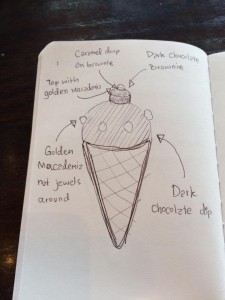 1
Caramel drip
on brownie
Dark Chocolate
Brownnie
Top with
golden Macademiz
Golden
Macademiz
not jewels
around
Dark
Chocolate dip